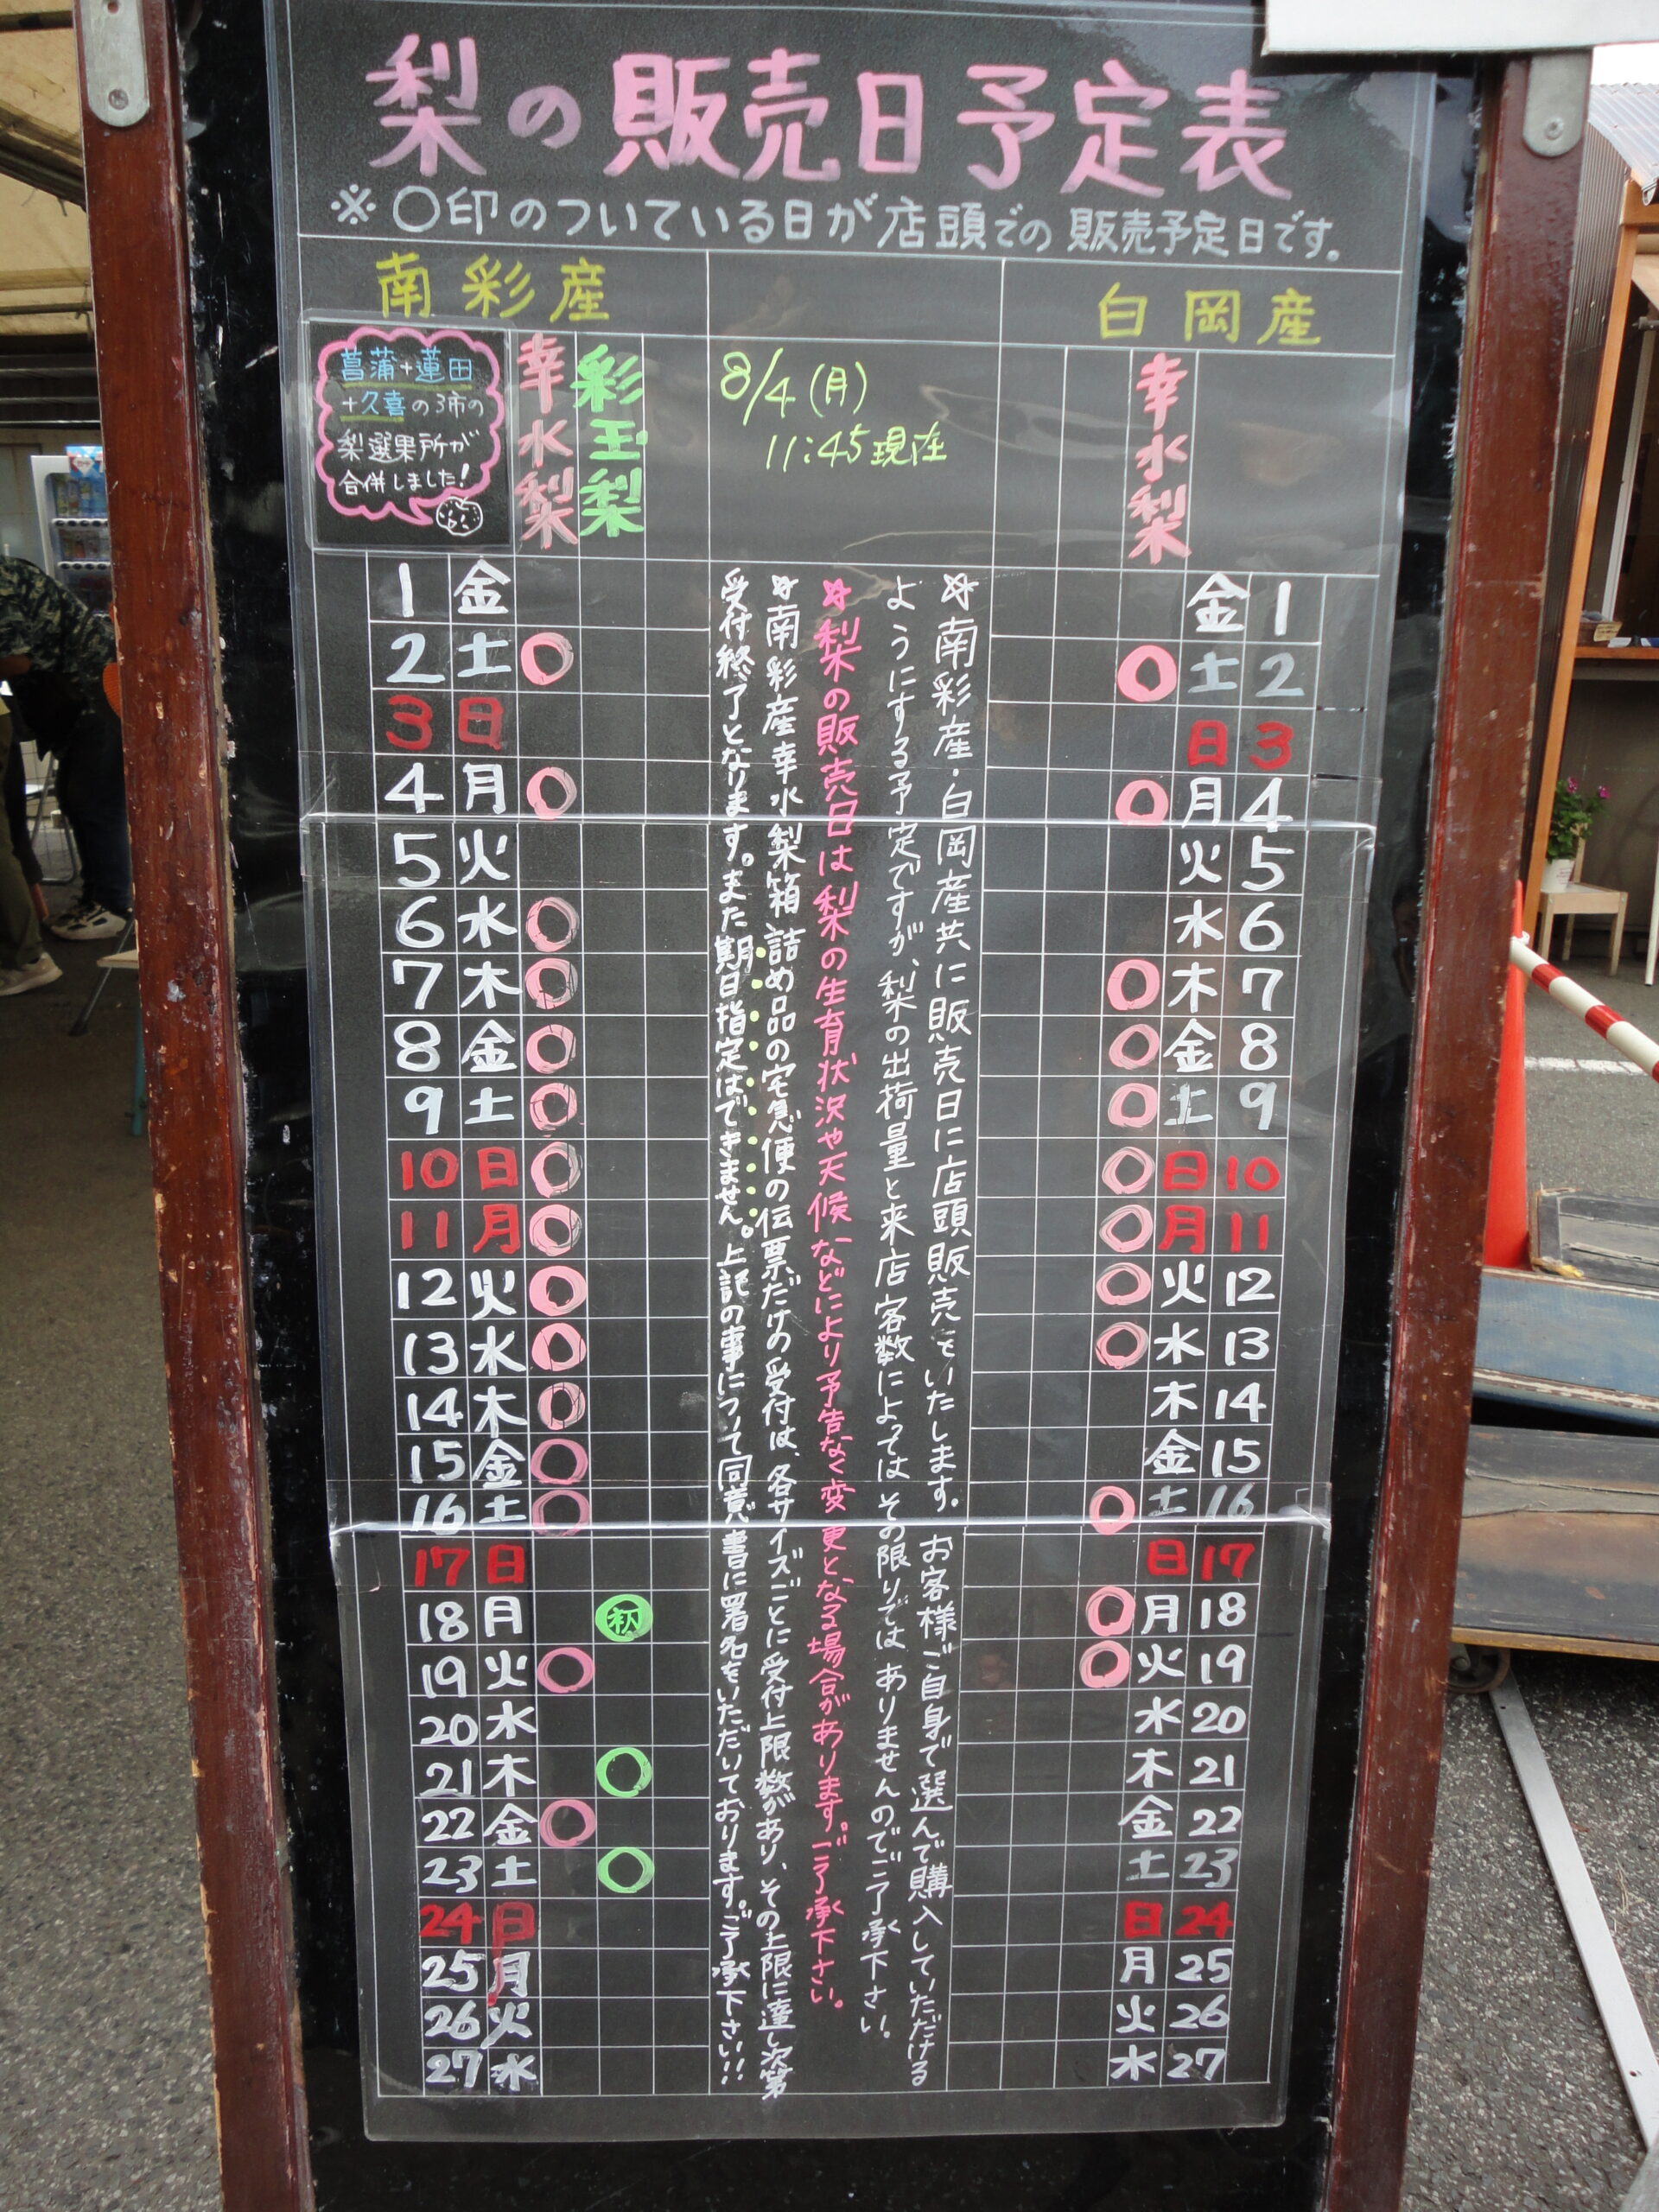 梨の販売日予定表
※○印のついている日が店頭での販売予定日です。
南彩産
白岡産
菖蒲+蓮田
+久喜の3市の
梨選果所が
合併しました!
幸水梨
彩玉梨
8/4(月)
11:45現在
幸水梨
☆南彩産・白岡産共に販売日に店頭販売をいたします。お客様ご自身で選んで購入していただける
ようにする予定ですが、梨の出荷量と来店客数によってはその限りではありませんのでご了承下さい。
☆梨の販売日は梨の生育状況や天候などにより予告なく変更となる場合があります。ご了承下さい。
☆南彩産幸水梨箱詰め品の宅急便の伝票だけの受付は、各サイズごとに受付上限数があり、その上限に達し次第
受付終了となります。また期日指定はできません。上記の事について同意書に署名をいただいております。ご了承下さい!!
1 金
2 土 ○
3 日
4 月 ○
5 火
6 水 ○
7 木 ○
8 金 ○
9 土 ○
10 日 ○
11 月 ○
12 火 ○
13 水 ○
14 木 ○
15 金 ○
16 土 ○
17 日
18 月 初
19 火 ○
20 水
21 木 ○
22 金 ○
23 土 ○
24 日
25 月
26 火
27 水
金 1
○ 土 2
日 3
○ 月 4
火 5
水 6
○ 木 7
○ 金 8
○ 土 9
○ 日 10
○ 月 11
○ 火 12
○ 水 13
木 14
金 15
○ 土 16
日 17
○ 月 18
○ 火 19
水 20
木 21
金 22
土 23
日 24
月 25
火 26
水 27